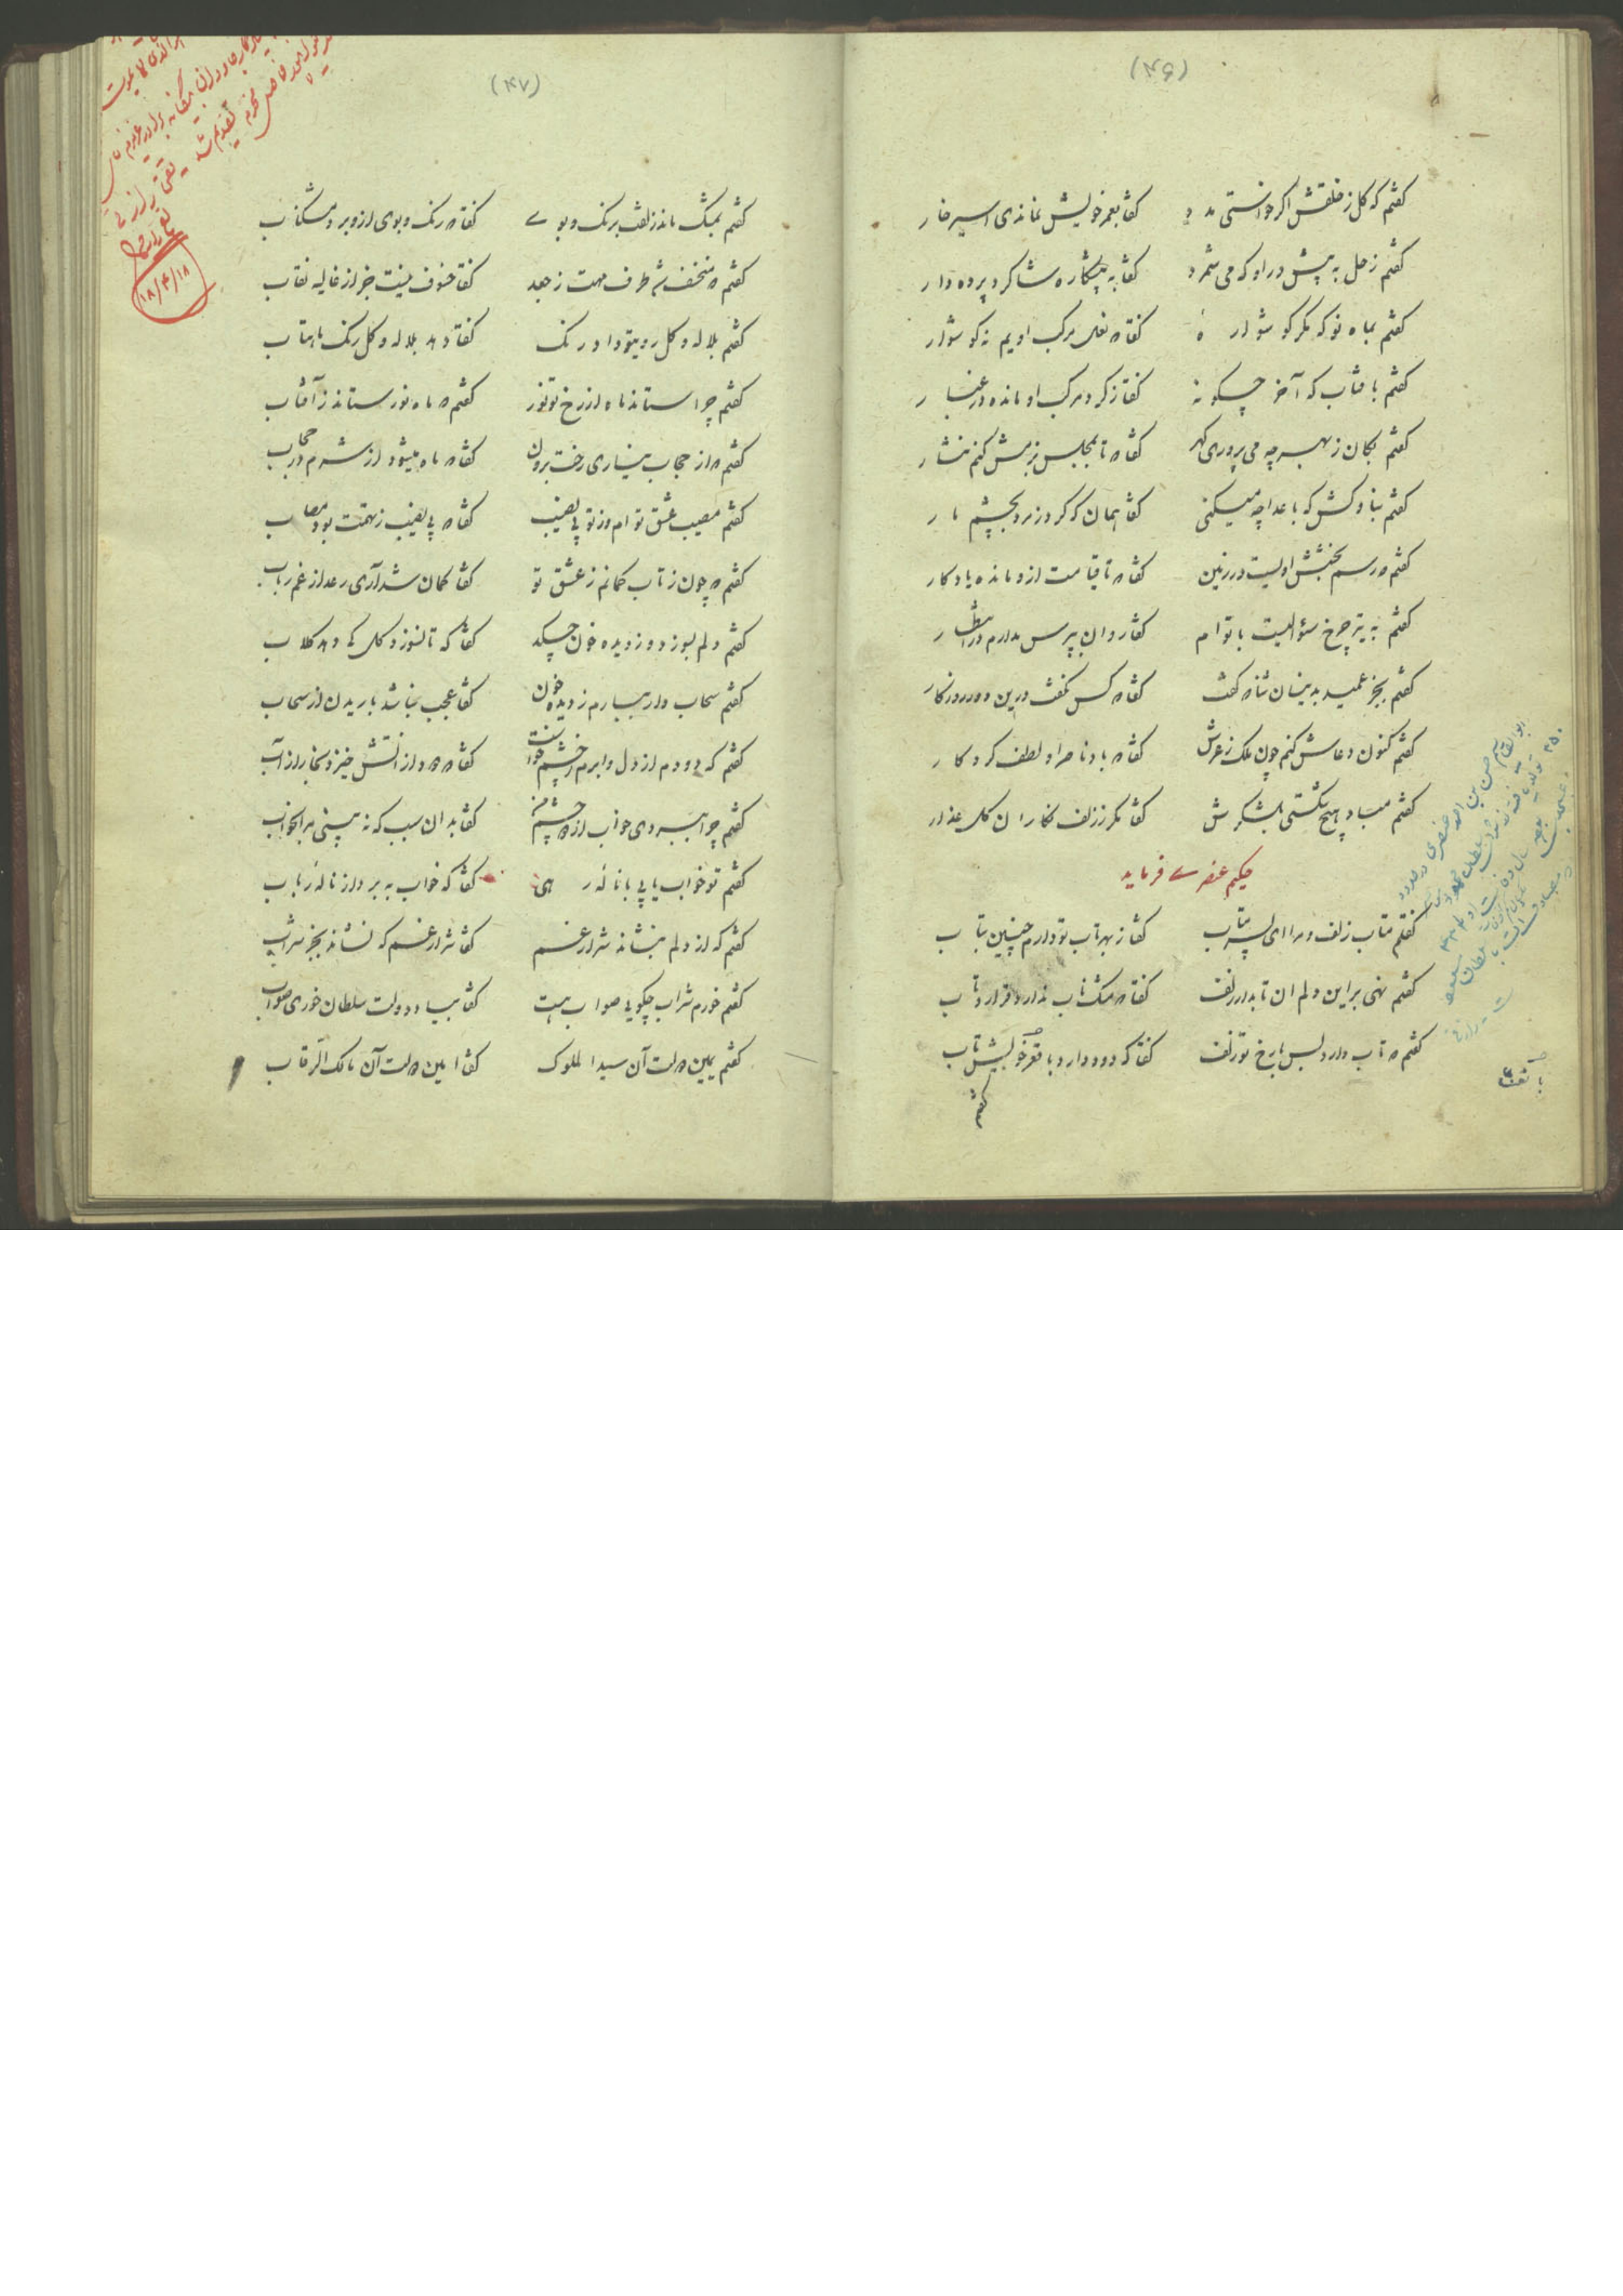 (۴۶)
گفتم که گل ز خلقش اگر خواستی مدد گفتا بعمر خویش نماندی اسیر خار
گفتم زحل به پیش در او که می شمرد گفتا به پیشکاره شاگرد پرده دار
گفتم بماه نو که مگر گوشواره گفتا که نعل مرکب اویم نه گوشوار
گفتم بآفتاب که آخر چگونه گفتا ز گرد مرکب او مانده در غبار
گفتم بکان ز بهر چه می پروری گهر گفتا که تا بمجلس بزمش کنم نثار
گفتم بناوکش که باعدا چه میکنی گفتا همان که کرد زمرد بچشم مار
گفتم که رسم بخشش اولیست در زمین گفتا که تا قیامت ازو مانده یادگار
گفتم به تیر چرخ سؤالیست با توام گفتا روان بپرس مدارم در انتظار
گفتم بجز عمید بدینسان ثنا که گفت گفتا که کس نگفت درین دور روزگار
گفتم کنون دعاش کنم چون ملک ز عرش گفتا که باد ناصر او لطف کردگار
گفتم مباد هیچ شکستی بلشکرش گفتا مگر ز زلف نگاران گل عذار
حکیم عنصری فرماید
گفتم متاب زلف و مرا ای پسر متاب گفتا ز بهر تاب تو دارم چنین بتاب
گفتم نهی براین دلم آن تابدار زلف گفتا که مشک ناب ندارد قرار و تاب
گفتم که تاب دارد بس با رخ تو زلف گفتا که دود دارد با تف خویش تاب
گفتم
(۴۷)
گفتم بمشک ماند زلفت برنگ و بوی گفتا که رنگ و بوی ازو برد مشک ناب
گفتم که منخسف شد طرف مهت ز جعد گفتا خسوف نیست جز از غالیه نقاب
گفتم بلاله و گل روی تو داد رنگ گفتا دهد بلاله و گل رنگ ماهتاب
گفتم چرا ستاند ماه از رخ تو نور گفتم که ماه نور ستاند ز آفتاب
گفتم که از حجاب نیاری رخت برون گفتا که ماه میشود از شرم در حجاب
گفتم مصیب عشق توام وز تو بی نصیب گفتا که بی نصیب ز تهمت بود مصاب
گفتم که چون ز تاب کمانم ز عشق تو گفتا کمان شد آری رعد از غم رباب
گفتم دلم بسوزد وز دیده خون چکد گفتا که تا نسوزد گل کی دهد گلاب
گفتم سحاب وار ببارم ز دیده خون گفتا عجب نباشد باریدن از سحاب
گفتم که دودم از دل و ابرم ز چشم خواست گفتا که دود از آتش خیزد بخار از آب
گفتم چرا ببردی خواب از دو چشم من گفتا بدان سبب که نه بینی مرا بخواب
گفتم تو خواب یابی با ناله رهی گفتا که خواب به برد از ناله رباب
گفتم که از دلم بنشاند شرار غم گفتا شرار غم که نشاند بجز شراب
گفتم خورم شراب چگویی صواب هست گفتا بیاد دولت سلطان خوری صواب
گفتم یمین دولت آن سید الملوک گفتا امین ملت آن مالک الرقاب
۱۸/۴/۱۸